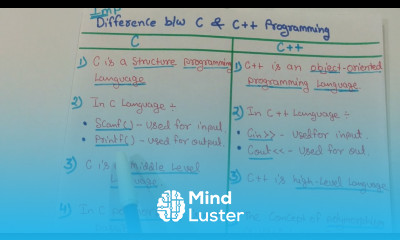 Imp
Difference b/w C & C++ Programming
C
C++
1) C is a Structure programming
Language
2) In C Language ÷
• Scanf() - used for input.
• Printf() - used for output.
3) C is Middle Level
4) In C
1) C++ is an object-oriented
programming Language
2) In C++ Language ÷
• Cin>> - used for input.
• Cout<< - Used for out.
3) C++ is high-Level Language
Mind
Luster